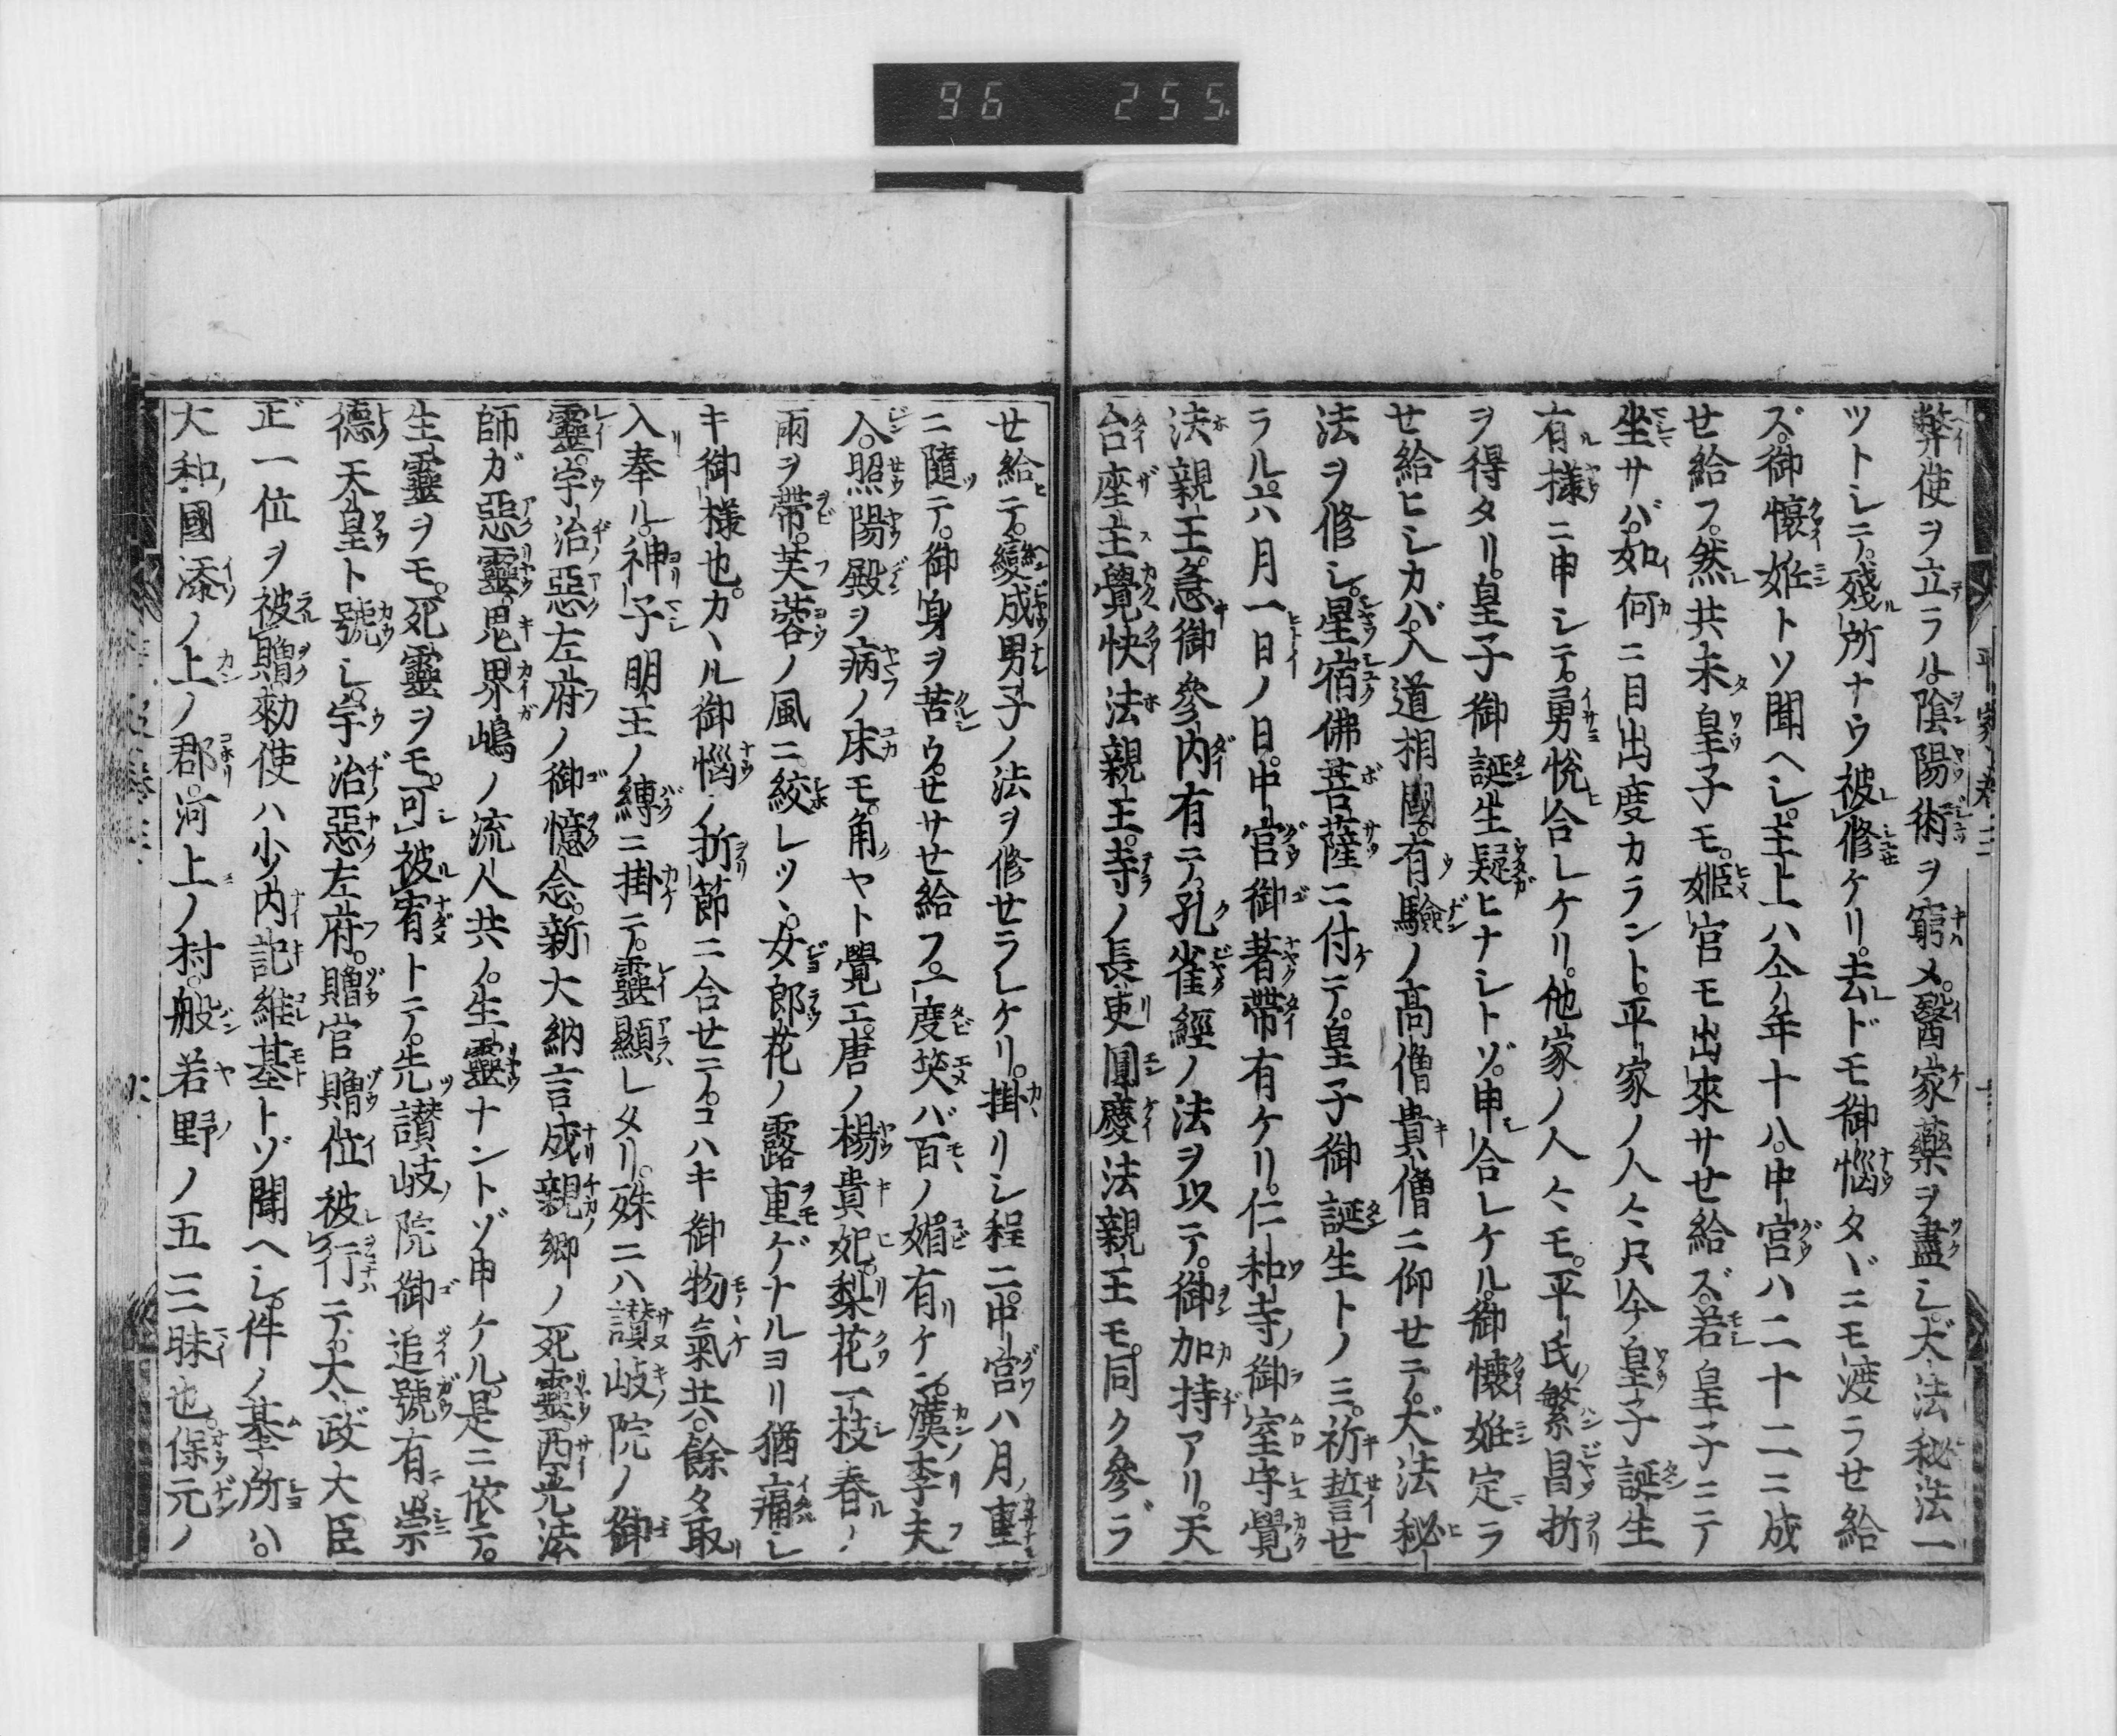 96 255
弊使ヲ立ラル陰陽術ヲ窮メ醫家藥ヲ盡シ大法秘法一
ツトシテ殘所ナウ被修ケリ去ドモ御惱タヾニモ渡ラせ給
ズ御懷姙トソ聞ヘシ主上ハ今年十八中宮ハ二十二ニ成
せ給フ然共未皇子モ姫宮モ出來サせ給ズ若皇子ニテ
坐サバ如何ニ目出度カラント平家ノ人々只今皇子誕生
有樣ニ申シテ勇悦合レケリ他家ノ人々モ平氏繁昌折
ヲ得タリ皇子御誕生疑ヒナシトゾ申合レケル御懷姙定ラ
せ給ヒシカバ入道相國有驗ノ高僧貴僧ニ仰せテ大法秘
法ヲ修シ星宿佛菩薩ニ付テ皇子御誕生トノミ祈誓せ
ラル六月一日ノ日中宮御著帶有ケリ仁和寺ノ御室守覺
法親王急御參内有テ孔雀經ノ法ヲ以テ御加持アリ天
台座主覺快法親王寺ノ長吏圓慶法親王モ同ク參ラ
せ給テ變成男子ノ法ヲ修せラレケリ掛リシ程ニ中宮ハ月重
ニ隨テ御身ヲ苦ウせサせ給フ一度笑バ百ノ媚有ケン漢李夫
人照陽殿ヲ病ノ床モ角ヤト覺エ唐ノ楊貴妃梨花一枝春ノ
雨ヲ帶芙蓉ノ風ニ絞レツヽ女郎花ノ露重ゲナルヨリ猶痛シ
キ御樣也カヽル御惱ノ折節ニ合せテコハキ御物氣共餘タ取
入奉ル神子明王ノ縛ニ掛テ靈顯レタリ殊ニハ讃岐院ノ御
靈宇治惡左府ノ御憶念新大納言成親卿ノ死靈西光法
師ガ惡靈鬼界嶋ノ流人共ノ生靈ナントゾ申ケル是ニ依テ
生靈ヲモ死靈ヲモ可被宥トテ先讃岐院御追號有崇
德天皇ト號シ宇治惡左府贈官贈位被行テ大政大臣
正一位ヲ被贈勅使ハ少内記維基トゾ聞ヘシ件ノ墓所ハ
大和國添ノ上ノ郡河上ノ村般若野ノ五三昧也保元ノ